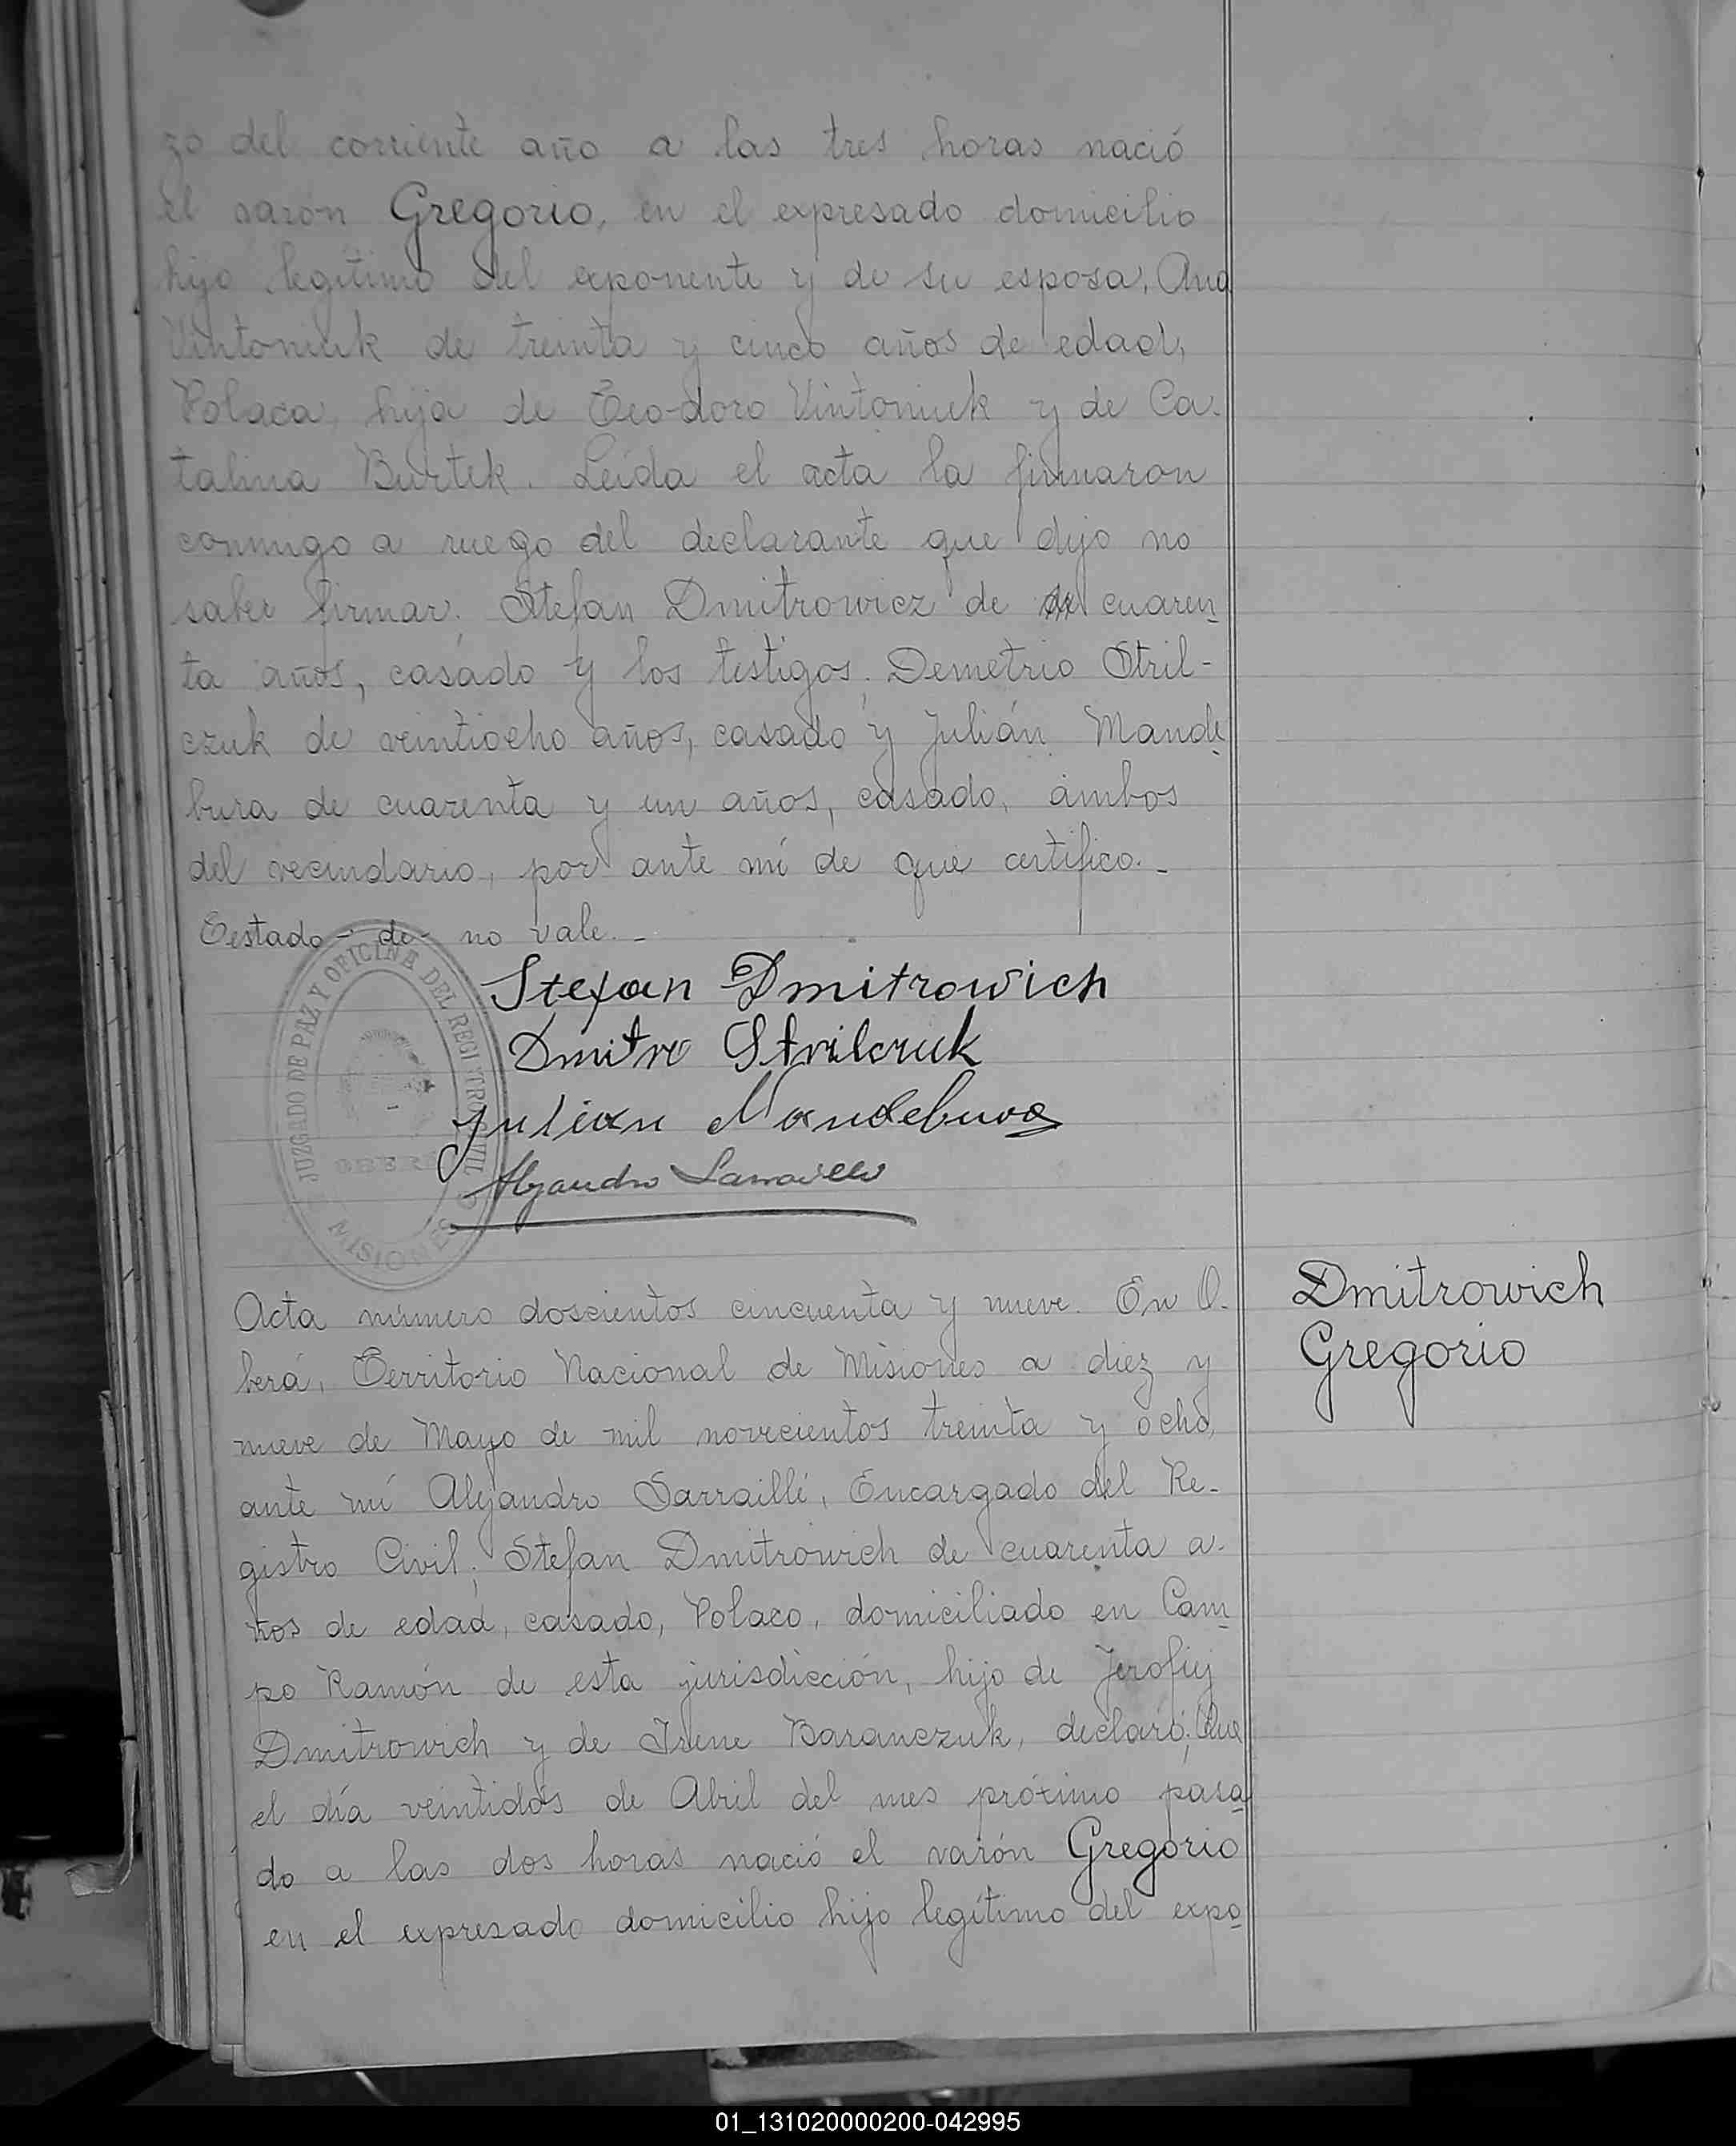 zo del corriente año a las tres horas nació
el varón Gregorio, en el expresado domicilio
hijo legítimo del exponente y de su esposa, Ana
Vintoniuk de treinta y cinco años de edad,
Polaca, hija de Teodoro Vintoniuk y de Ca-
talina Burtek. Leída el acta la firmaron
conmigo a ruego del declarante que dijo no
saber firmar; Stefan Dmitrowicz de de cuaren
ta años, casado y los testigos; Demetrio Stril-
czuk de veintiocho años, casado y Julián Mande
bura de cuarenta y un años, casado, ambos
del vecindario, por ante mí de que certifico.-
Testado - de - no vale.-
JUZGADO DE PAZ Y OFICINA DEL REGISTRO CIVIL
OBERÁ
MISIONES
Stefan Dmitrowich
Dmitro Strilczuk
Julian Mandebura
Alejandro Sarraillé
Dmitrowich
Gregorio
Acta número doscientos cincuenta y nueve. En O-
berá, Territorio Nacional de Misiones a diez y
nueve de Mayo de mil novecientos treinta y ocho,
ante mí Alejandro Sarraillé, Encargado del Re-
gistro Civil; Stefan Dmitrowich de cuarenta a-
ños de edad, casado, Polaco, domiciliado en Cam
po Ramón de esta jurisdicción, hijo de Jerofiej
Dmitrowich y de Irene Baranczuk, declaró; Que
el día veintidós de Abril del mes próximo pasa
do a las dos horas nació el varón Gregorio
en el expresado domicilio hijo legítimo del expo
01_131020000200-042995